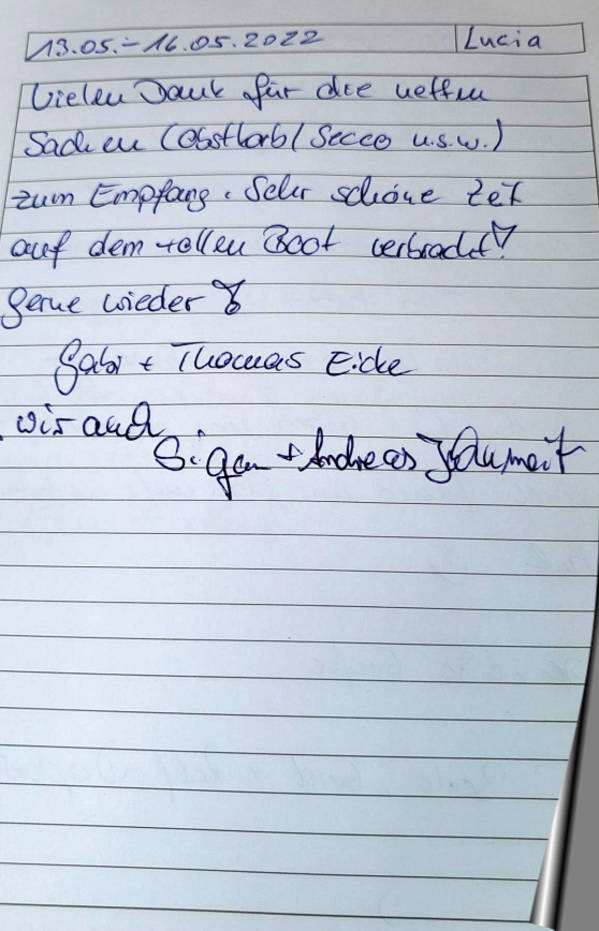 13.05.-16.05.2022 Lucia
Vielen Dank für die netten
Sachen (Obstkorb/Secco u.s.w.)
zum Empfang. Sehr schöne Zeit
auf dem tollen Boot verbracht!
Gerne wieder
Gabi + Thomas Eicke
wir auch
+ Andreas